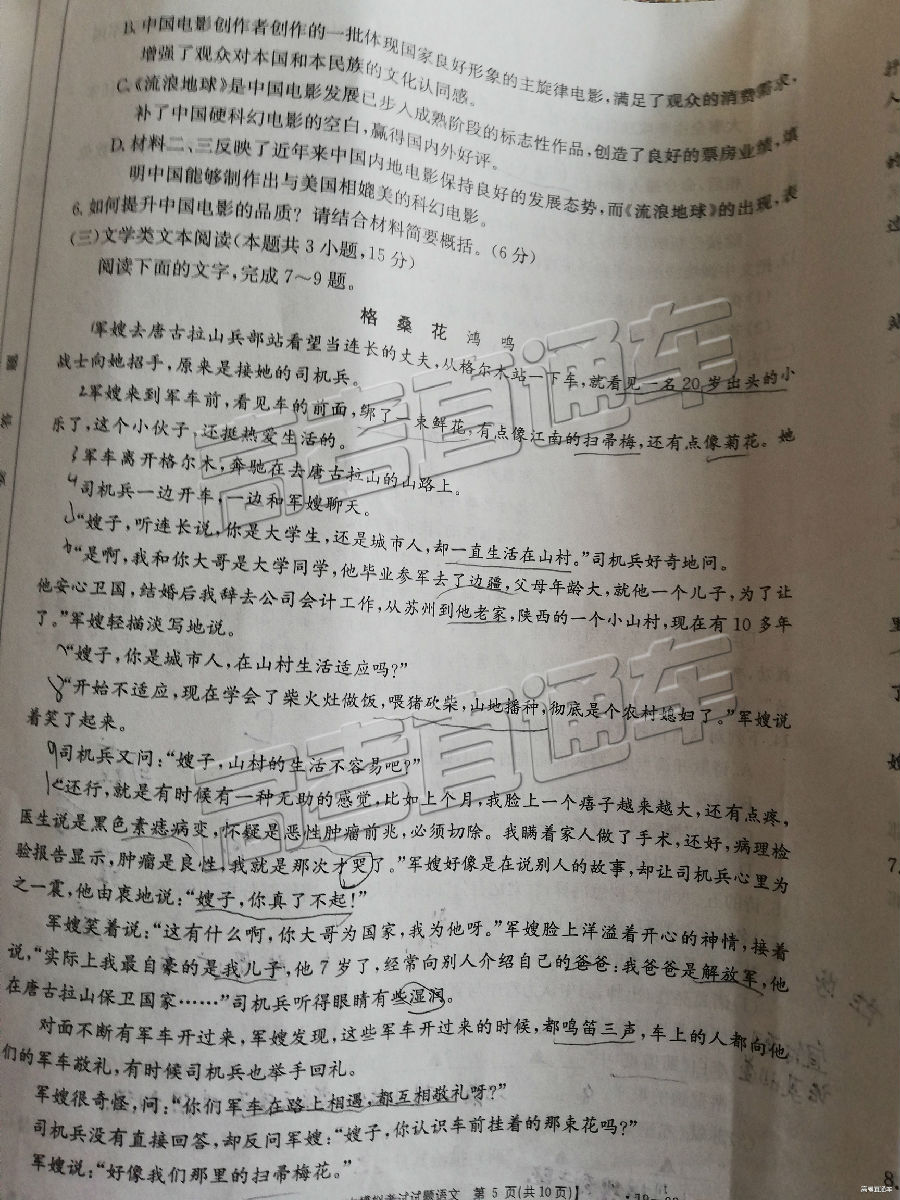 B. 中国电影创作者创作的一批体现国家良好形象的主旋律电影,满足了观众的消费需求,
增强了观众对本国和本民族的文化认同感。
C.《流浪地球》是中国电影发展已步入成熟阶段的标志性作品,创造了良好的票房业绩,填
补了中国硬科幻电影的空白,赢得国内外好评。
D. 材料二、三反映了近年来中国内地电影保持良好的发展态势,而《流浪地球》的出现,表
明中国能够制作出与美国相媲美的科幻电影。
6. 如何提升中国电影的品质?请结合材料简要概括。(6分)
(三)文学类文本阅读(本题共3小题,15分)
阅读下面的文字,完成7~9题。
格 桑 花 鸿 鸣
1军嫂去唐古拉山兵部站看望当连长的丈夫,从格尔木站一下车,就看见一名20岁出头的小
战士向她招手,原来是接她的司机兵。
2军嫂来到军车前,看见车的前面,绑了一束鲜花,有点像江南的扫帚梅,还有点像菊花。她
乐了,这个小伙子,还挺热爱生活的。
3军车离开格尔木,奔驰在去唐古拉山的山路上。
4司机兵一边开车,一边和军嫂聊天。
5“嫂子,听连长说,你是大学生,还是城市人,却一直生活在山村。”司机兵好奇地问。
6“是啊,我和你大哥是大学同学,他毕业参军去了边疆,父母年龄大,就他一个儿子,为了让
他安心卫国,结婚后我辞去公司会计工作,从苏州到他老家,陕西的一个小山村,现在有10多年
了。”军嫂轻描淡写地说。
7“嫂子,你是城市人,在山村生活适应吗?”
8“开始不适应,现在学会了柴火灶做饭,喂猪砍柴,山地播种,彻底是个农村媳妇了。”军嫂说
着笑了起来。
9司机兵又问:“嫂子,山村的生活不容易吧?”
10“还行,就是有时候有一种无助的感觉,比如上个月,我脸上一个痦子越来越大,还有点疼,
医生说是黑色素痣病变,怀疑是恶性肿瘤前兆,必须切除。我瞒着家人做了手术,还好,病理检
验报告显示,肿瘤是良性,我就是那次才哭了。”军嫂好像是在说别人的故事,却让司机兵心里为
之一震,他由衷地说:“嫂子,你真了不起!”
军嫂笑着说:“这有什么啊,你大哥为国家,我为他呀。”军嫂脸上洋溢着开心的神情,接着
说,“实际上我最自豪的是我儿子,他7岁了,经常向别人介绍自己的爸爸:我爸爸是解放军,他
在唐古拉山保卫国家……”司机兵听得眼睛有些湿润。
对面不断有军车开过来,军嫂发现,这些军车开过来的时候,都鸣笛三声,车上的人都向他
们的军车敬礼,有时候司机兵也举手回礼。
军嫂很奇怪,问:“你们军车在路上相遇,都互相敬礼呀?”
司机兵没有直接回答,却反问军嫂:“嫂子,你认识车前挂着的那束花吗?”
军嫂说:“好像我们那里的扫帚梅花。”
模拟考试试题语文 第 5 页(共10页)】
高考直通车
高考直通车
高考直通车